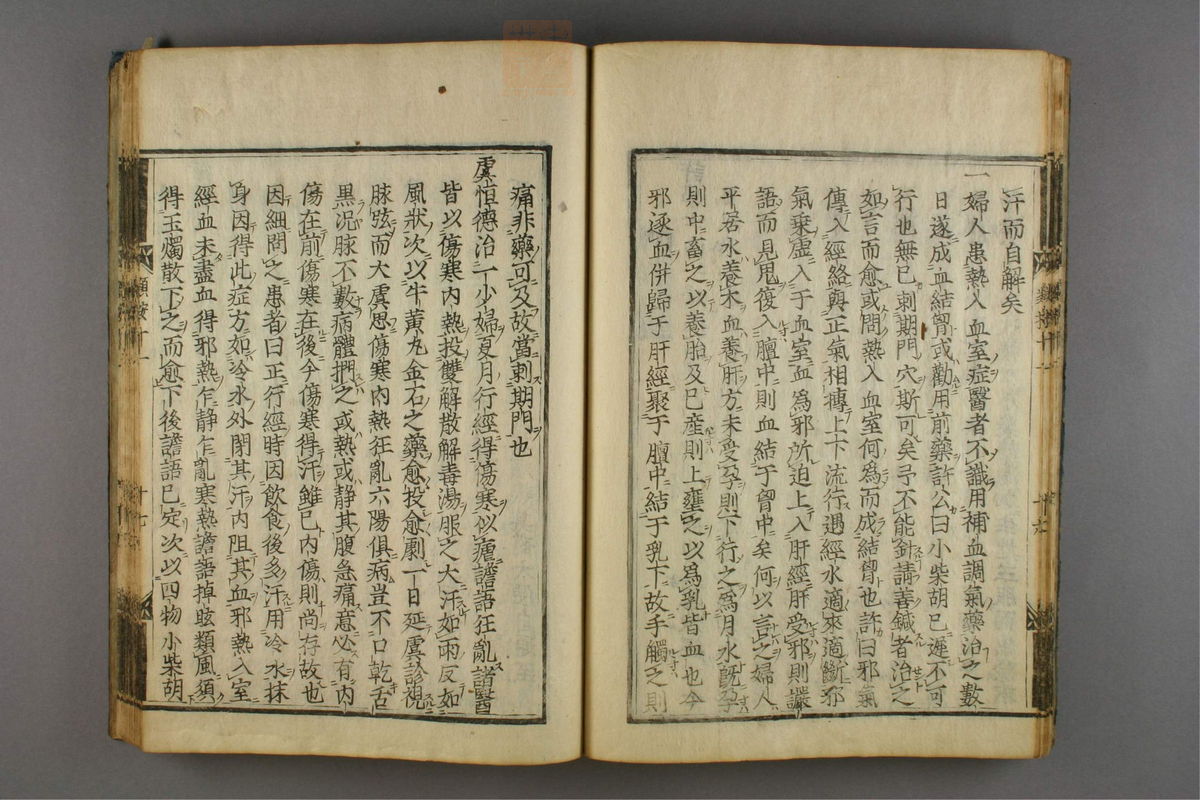 汗而自解矣
一婦人患熱入血室症醫者不識用補血調氣藥治之數
日遂成血結胷或勸用前藥許公曰小柴胡已遲不可
行也無已刺期門穴斯可矣予不能針請善鍼者治之
如言而愈或問熱入血室何為而成結胷也許曰邪氣
傳入經絡與正氣相搏上下流行遇經水適來適斷邪
氣乗虛入于血室血為邪所迫上入肝經肝受邪則讝
語而見鬼復入膻中則血結于胷中矣何以言之婦人
平居水養木血養肝方未受孕則下行之為月水旣孕
則中畜之以養胎及已産則上壅之以為乳皆血也今
邪逐血併歸于肝經聚于膻中結于乳下故手觸之則
痛非藥可及故當刺期門也
虞恒德治一少婦夏月行經得傷寒似瘧譫語狂亂諸醫
皆以傷寒内熱投雙解散解毒湯服之大汗如雨反如
風狀次以牛黃丸金石之藥愈投愈劇一日延虞診視
脉弦而大虞思傷寒内熱狂亂六陽俱病豈不口乾舌
黒況脉不數病體捫之或熱或静其腹急痛意必有内
傷在前傷寒在後今傷寒得汗雖已内傷則尚存故也
因細問之患者曰正行經時因飲食後多汗用冷水抹
身因得此症方知冷水外閉其汗内阻其血邪熱入室
經血未盡血得邪熱乍静乍亂寒熱譫語掉眩類風須
得玉燭散下之而愈下後譫語已定次以四物小柴胡
類按十一
十七